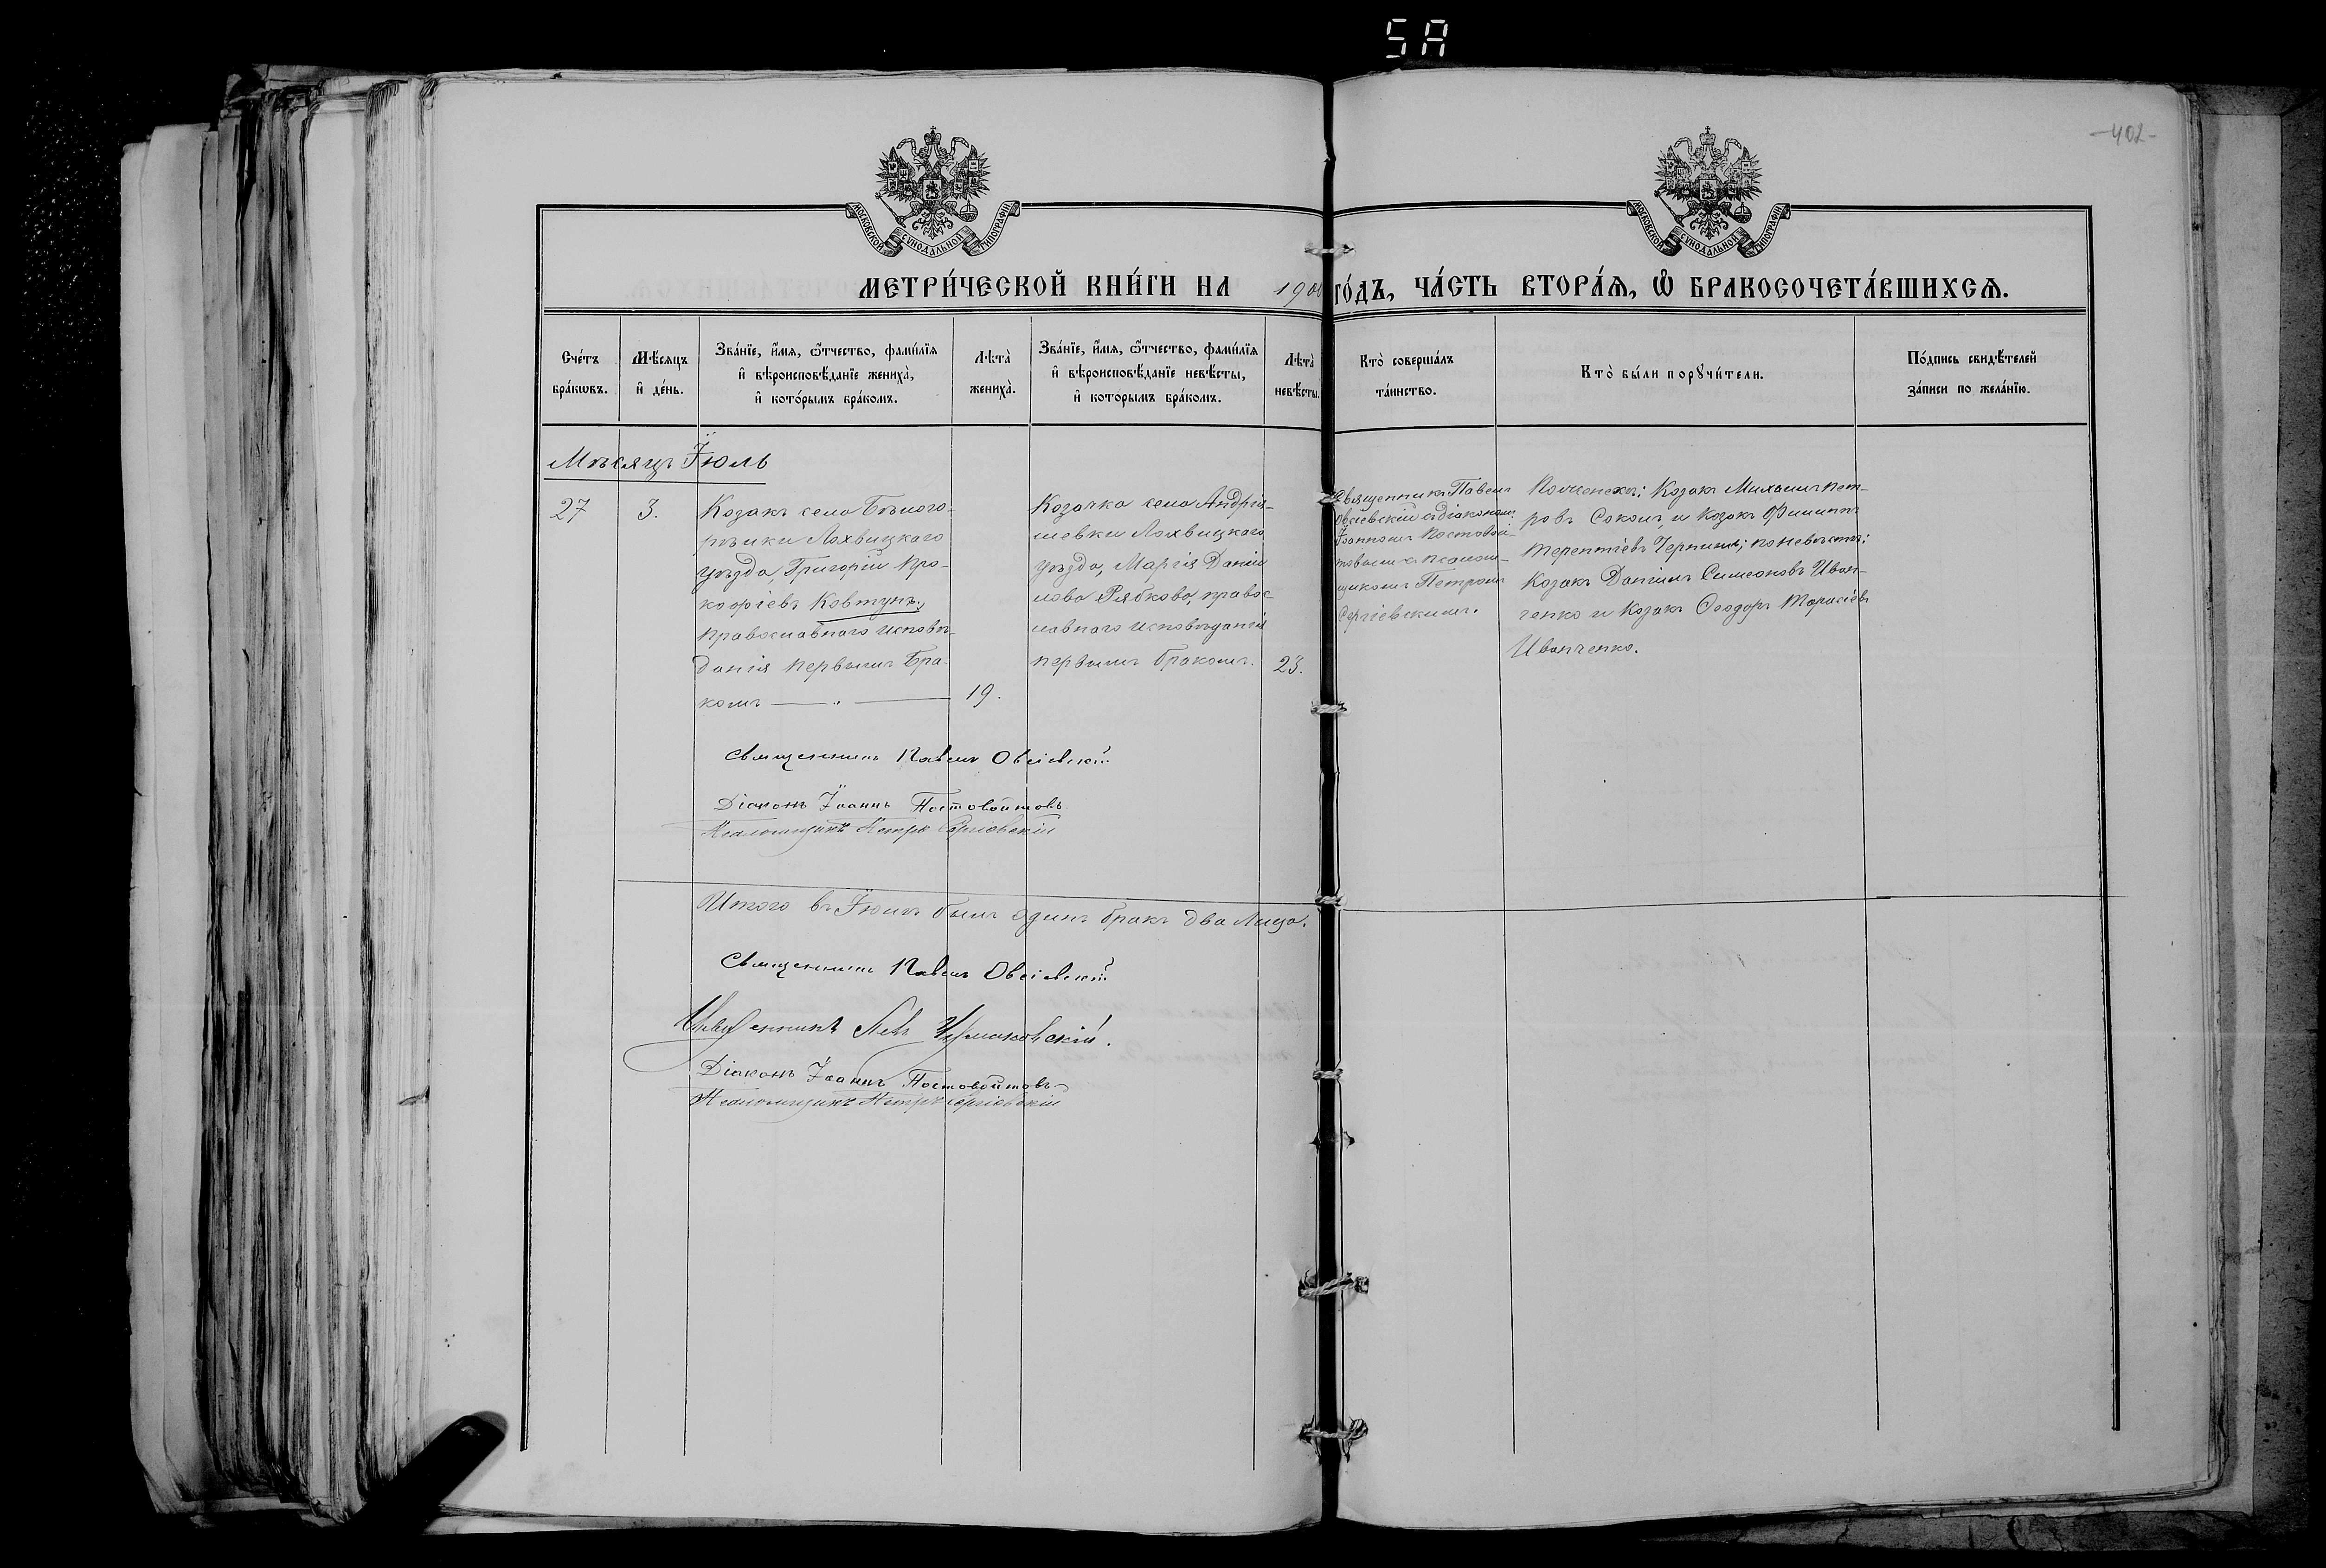 5A
-402-
МОСКОВСКОЙ СѴНОДАЛЬНОЙ ТИПОГРАФІИ
МОСКОВСКОЙ СѴНОДАЛЬНОЙ ТИПОГРАФІИ
МЕТРИ́ЧЕСКОЙ КНИ́ГИ НА 1900 ГО́ДЪ, ЧА́СТЬ ВТОРА́Я, Ѡ БРАКОСОЧЕТА́ВШИХСЯ.
Сче́тъ
бра́кѡвъ.
Мѣ́сяцъ
и҆ де́нь.
Зва́нїе, и҆́мя, ѻ҆́тчество, фами́лїя
и҆ вѣроисповѣ́данїе жениха̀,
и҆ кото́рымъ бра́комъ.
Лѣта̀
жениха̀.
Зва́нїе, и҆́мя, ѻ҆́тчество, фами́лїя
и҆ вѣроисповѣ́данїе невѣ́сты,
и҆ которымъ бра́комъ.
Лѣта̀
невѣ́сты.
Кто̀ совершалъ
та́инство.
Кто̀ бы́ли порꙋчи́тели.
По́дпись свидѣ́телей
за́писи по жела́нїю.
Мѣсяцъ Іюль
27
3.
Козакъ села Бѣлого-
рѣлки Лохвицкаго
уѣзда, Григорій Про-
кофіевъ Ковтунъ,
православнаго исповѣ-
данія первымъ бра-
комъ
19.
Козачка села Андрія-
шевки Лохвицкаго
уѣзда, Марія Даніи-
лова Рябкова, правос-
лавнаго исповѣданія
первымъ бракомъ.
23.
Священникъ Павелъ
Овсіевскій съ діакономъ
Іоанномъ Постовой-
товымъ и псалом-
щикомъ Петромъ
Сергіевскимъ.
По женихѣ: Козакъ Михаилъ Пет-
ровъ Соколъ, и козакъ Филиппъ
Терентіевъ; по невѣстѣ:
Козакъ Даніилъ Симеоновъ Иван-
ченко и козакъ Ѳеодоръ Тарасіевъ
Иванченко.
Священникъ Павелъ Овсіевскій
Діаконъ Іоаннъ Постовойтовъ
Псаломщикъ Петръ Сергіевскій
Итого въ Іюлѣ былъ одинъ бракъ два лица.
Священникъ Павелъ Овсіевскій
Священникъ Левъ
Діаконъ Іоаннъ Постовойтовъ
Псаломщикъ Петръ Сергіевскій